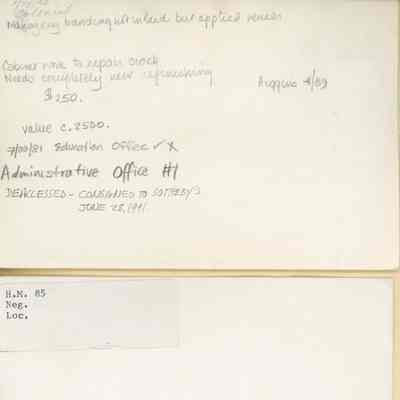 Mahogany banding not inlaid but applied veneer
Cabinet work to repair crack
Needs completely new refinishing
$250.
Huggins 4/89
value c.2500.
7/00/81 Education Office ✓ X
Administrative Office #1
DEACCESSED - CONSIGNED TO SOTHEBY'S
JUNE 28, 1991.
H.M. 85
Neg.
Loc.